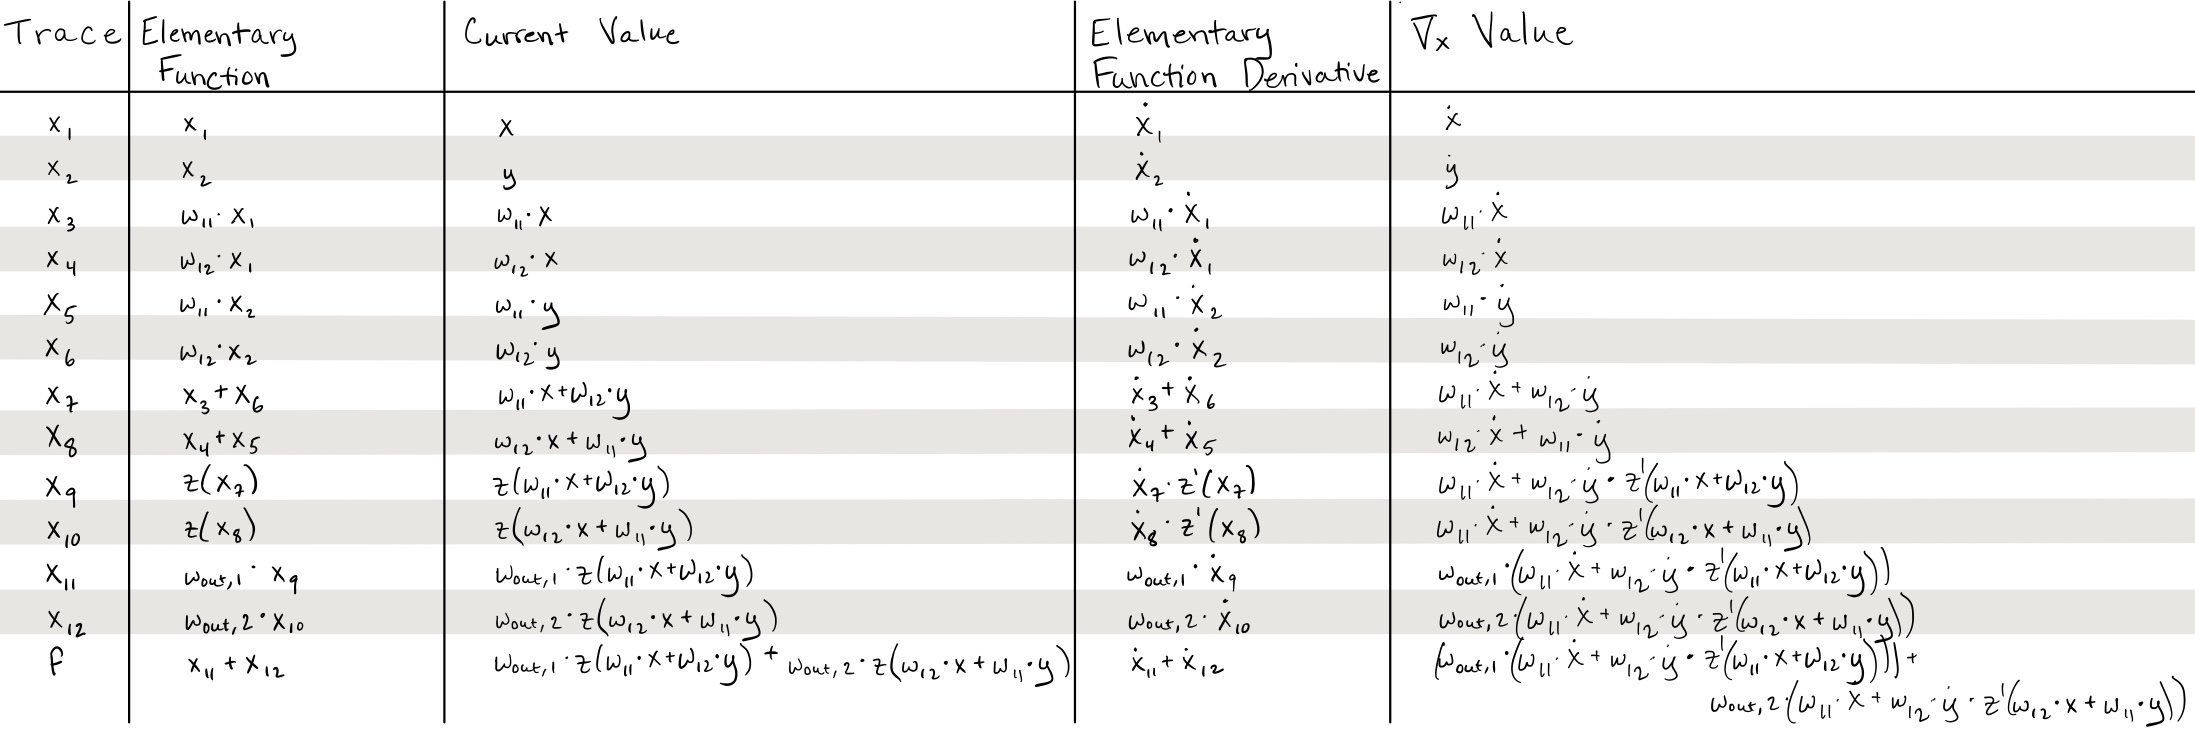 Trace Elementary Function Current Value Elementary Function Derivative ∇ₓ Value
x₁ x₁ x ẋ₁ ẋ
x₂ x₂ y ẋ₂ ẏ
x₃ w₁₁·x₁ w₁₁·x w₁₁·ẋ₁ w₁₁·ẋ
x₄ w₁₂·x₁ w₁₂·x w₁₂·ẋ₁ w₁₂·ẋ
x₅ w₁₁·x₂ w₁₁·y w₁₁·ẋ₂ w₁₁·ẏ
x₆ w₁₂·x₂ w₁₂·y w₁₂·ẋ₂ w₁₂·ẏ
x₇ x₃+x₆ w₁₁·x+w₁₂·y ẋ₃+ẋ₆ w₁₁·ẋ+w₁₂·ẏ
x₈ x₄+x₅ w₁₂·x+w₁₁·y ẋ₄+ẋ₅ w₁₂·ẋ+w₁₁·ẏ
x₉ z(x₇) z(w₁₁·x+w₁₂·y) ẋ₇·z'(x₇) w₁₁·ẋ+w₁₂·ẏ·z'(w₁₁·x+w₁₂·y)
x₁₀ z(x₈) z(w₁₂·x+w₁₁·y) ẋ₈·z'(x₈) w₁₁·ẋ+w₁₂·ẏ·z'(w₁₂·x+w₁₁·y)
x₁₁ w_out,1·x₉ w_out,1·z(w₁₁·x+w₁₂·y) w_out,1·ẋ₉ w_out,1·(w₁₁·ẋ+w₁₂·ẏ·z'(w₁₁·x+w₁₂·y))
x₁₂ w_out,2·x₁₀ w_out,2·z(w₁₂·x+w₁₁·y) w_out,2·ẋ₁₀ w_out,2·(w₁₁·ẋ+w₁₂·ẏ·z'(w₁₂·x+w₁₁·y))
f x₁₁+x₁₂ w_out,1·z(w₁₁·x+w₁₂·y)+w_out,2·z(w₁₂·x+w₁₁·y) ẋ₁₁+ẋ₁₂ (w_out,1·(w₁₁·ẋ+w₁₂·ẏ·z'(w₁₁·x+w₁₂·y)))+
w_out,2·(w₁₁·ẋ+w₁₂·ẏ·z'(w₁₂·x+w₁₁·y))